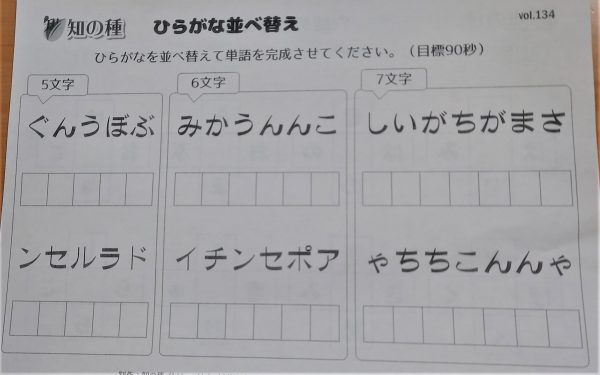 知の種 ひらがな並べ替え vol.134
ひらがなを並べ替えて単語を完成させてください。(目標90秒)
5文字
ぐんうぼぶ
ンセルラド
6文字
みかうんんこ
イチンセポア
7文字
しいがちがまさ
ゃちちこんんゃ